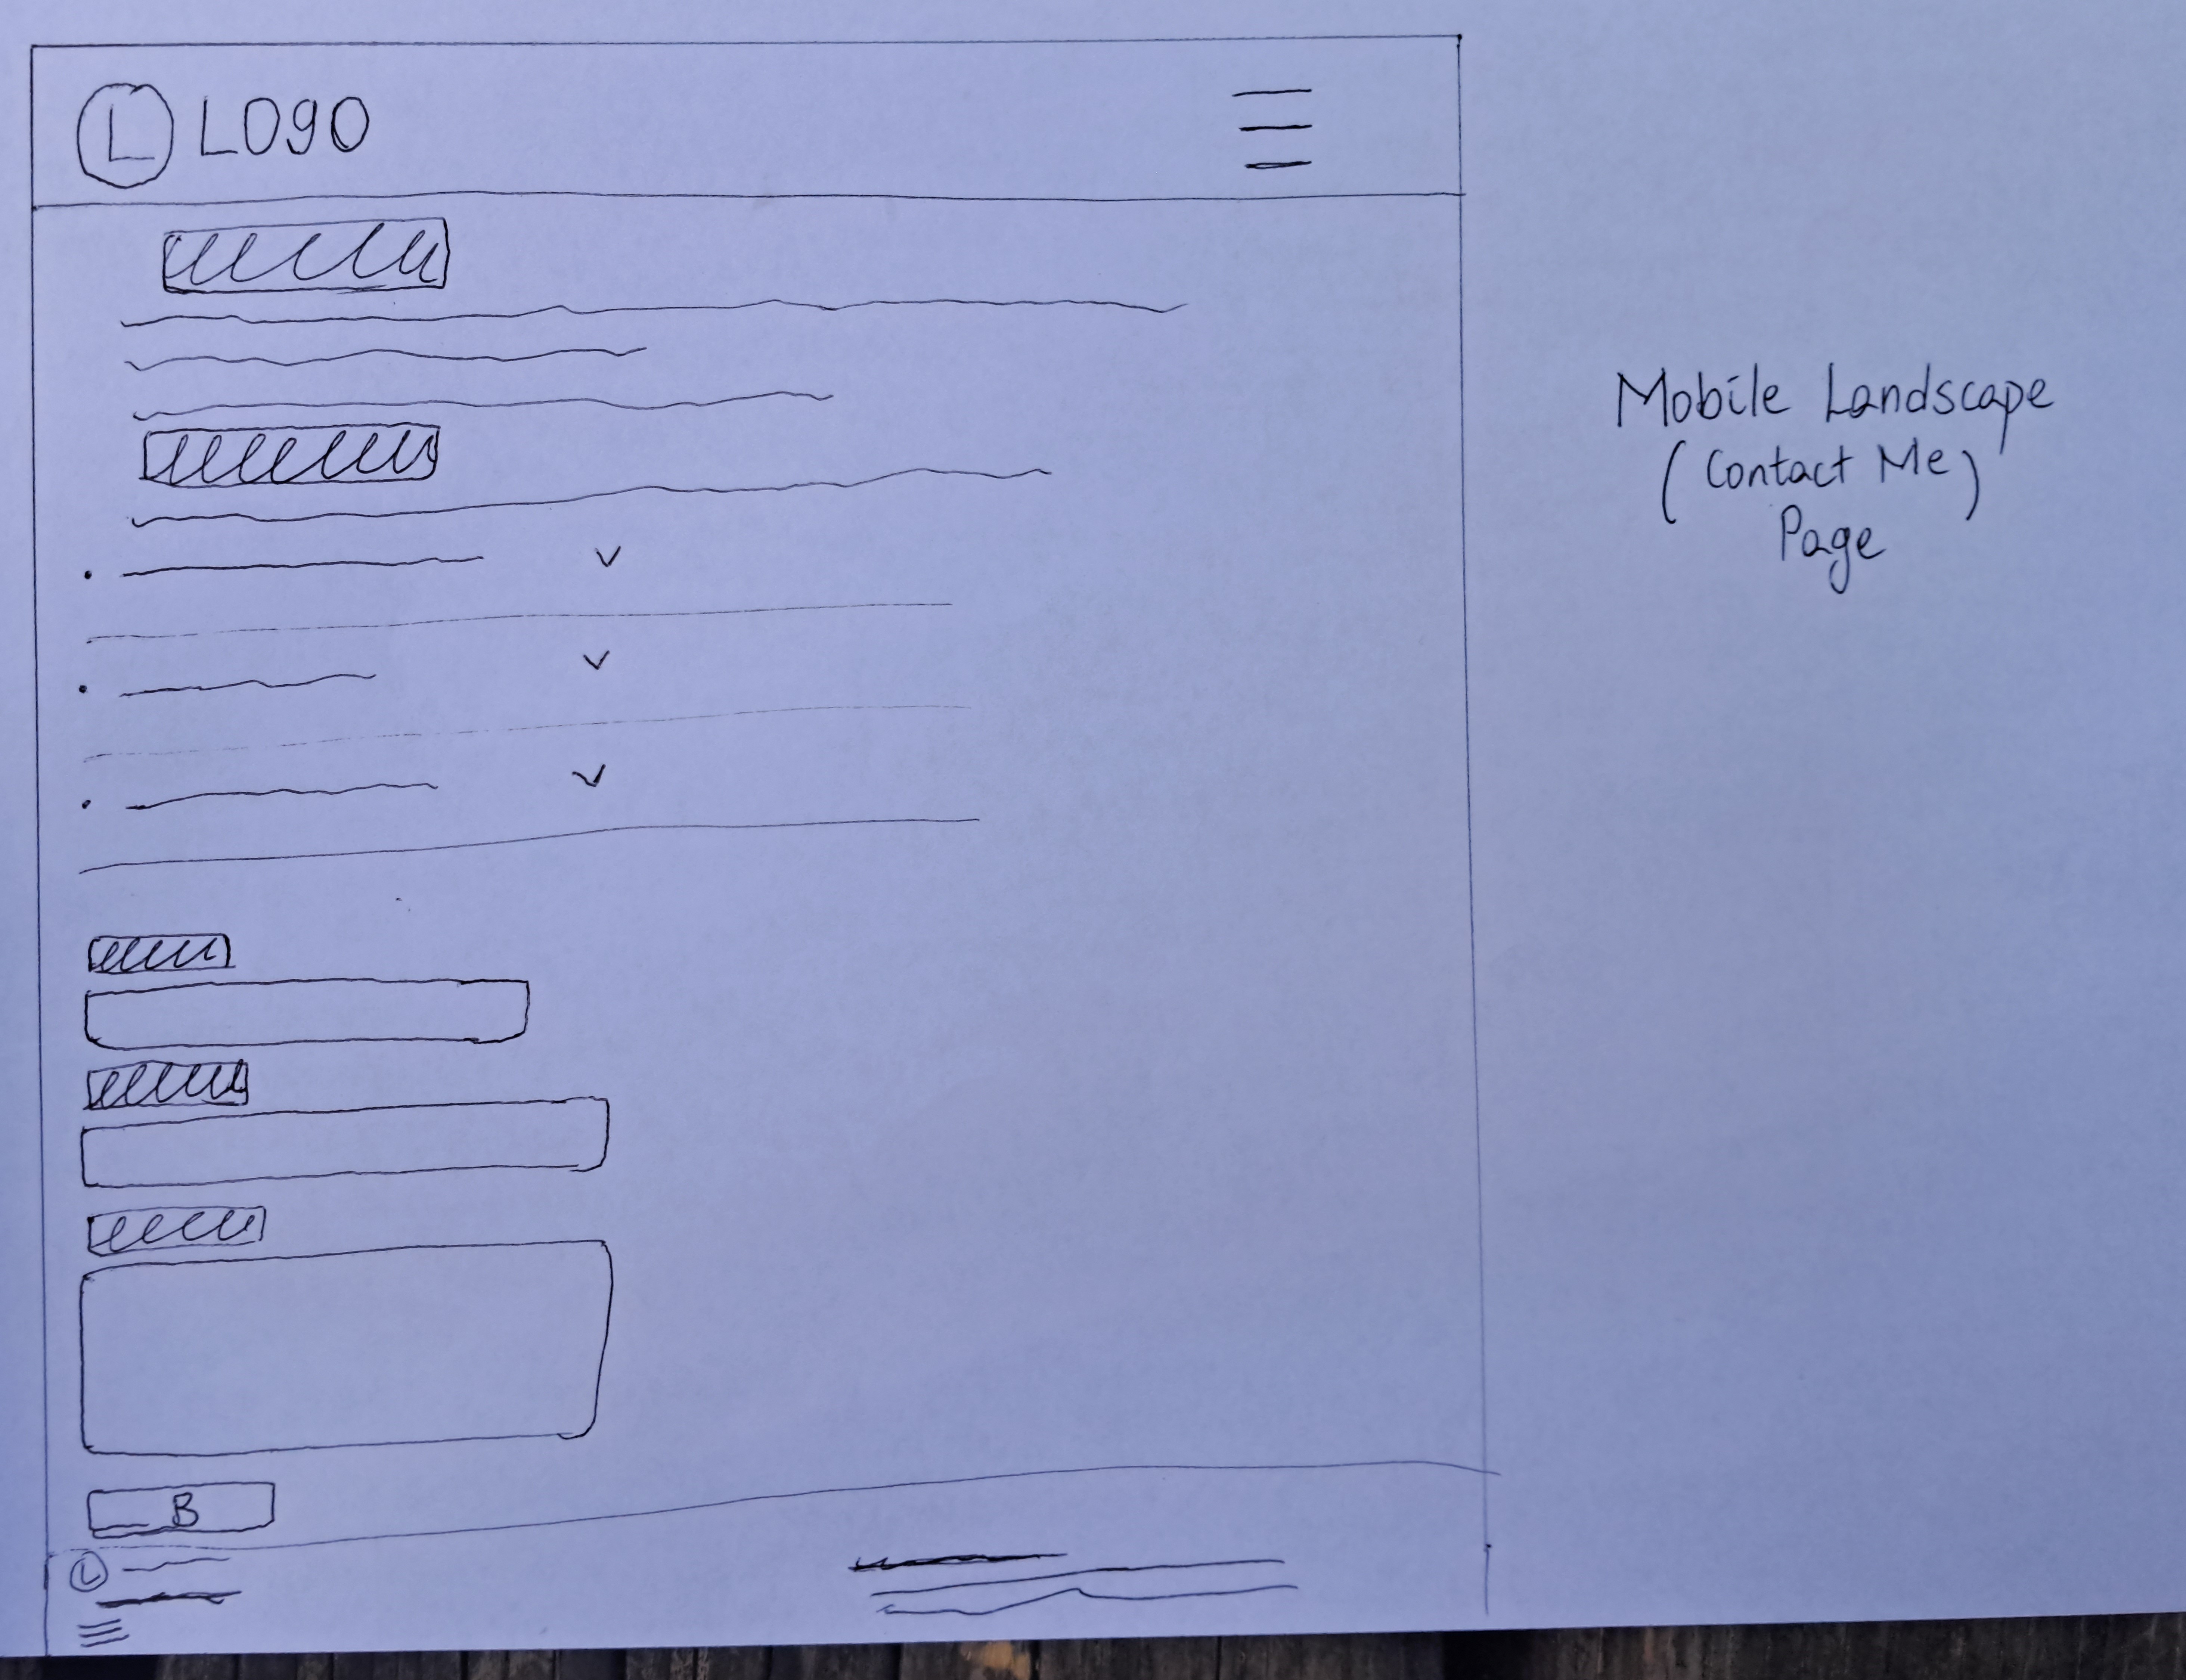 L LOgO
Mobile Landscape
(Contact Me)
Page
B
L